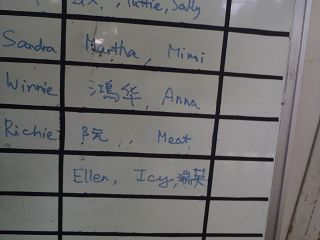 Sally
Sandra Martha, Mimi
Winnie 鸿华, Anna
Richie 阮, Meat
Ellen, Icy, 瑞英